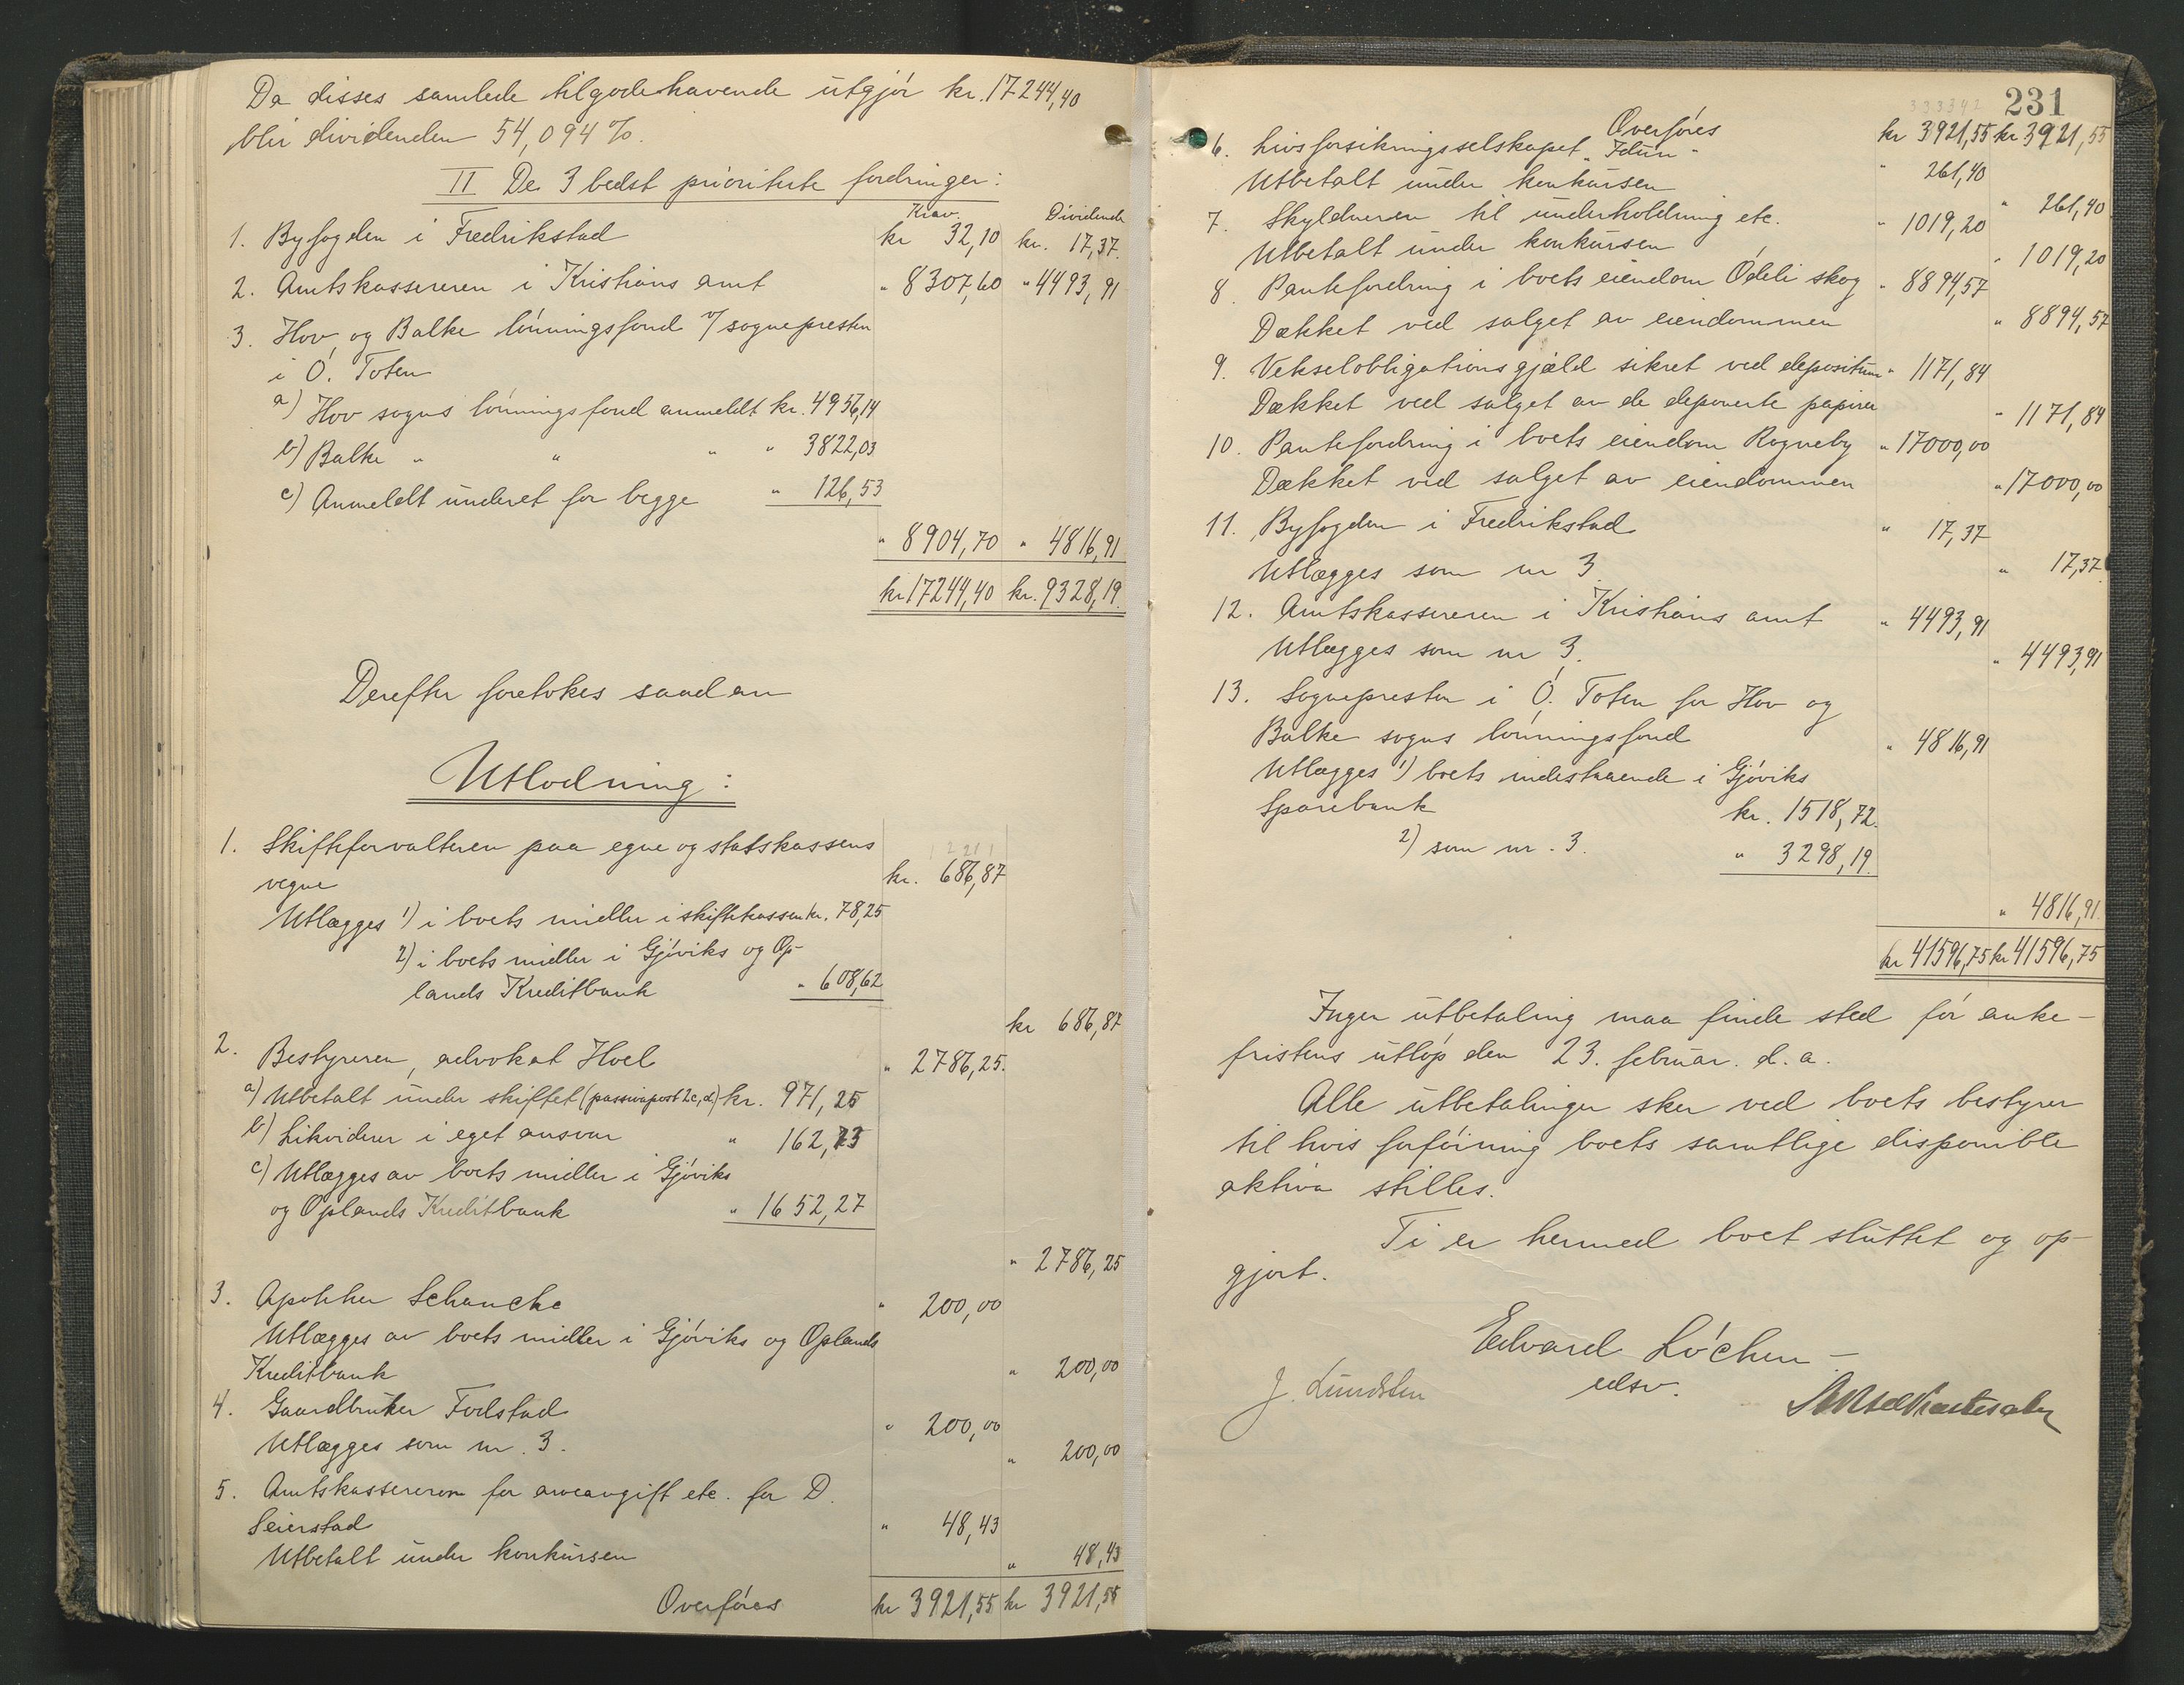 Da disses samlede tilgodehavende utgjør kr. 17244,40
blir dividenden 54,094 %.
II De 3 bedst prioriterte fordringer:
Krav. Dividende
1. Byfogden i Fredrikstad kr 32,10 kr. 17,37.
2. Amtskassereren i Kristians amt " 8307,60 " 4493,91
3. Hov og Balke lønningsfond v/ sognepresten
i Ø. Toten
a) Hov sogns lønningsfond anmeldt kr. 4956,14
b) Balke " " " " 3822,03
c) Anmeldt underet for begge " 126,53
" 8904,70 " 4816,91
kr 17244,40 kr. 9328,19.
Derefter foretokes saadan
Utlodning:
1. Skifteforvalteren paa egne og statskassens
vegne kr. 686,87
Utlægges 1) i boets midler i skiftekassen kr. 78,25
2) i boets midler i Gjøviks og Op-
lands Kreditbank " 608,62
kr 686,87
2. Bestyreren, advokat Hoel " 2786,25.
a) Utbetalt under skiftet (passivapost 2c, d) kr. 971,25
b) Likviderer i eget ansvar " 162,73
c) Utlægges av boets midler i Gjøviks
og Oplands Kreditbank " 1652,27
" 2786,25
3. Apotheker Schancke " 200,00
Utlægges av boets midler i Gjøviks og Oplands
Kreditbank " 200,00
4. Gaardbruker Fodstad " 200,00
Utlægges som nr. 3. " 200,00
5. Amtskassereren for arveavgift etc. for D.
Seierstad " 48,43
Utbetalt under konkursen " 48,43
Overføres kr 3921,55 kr 3921,55
231
Overføres kr 3921,55 kr 3921,55
6. Livsforsikringsselskapet "Idun" " 261,40
Utbetalt under konkursen " 261,40
7. Skyldneren til underholdning etc. " 1019,20
Utbetalt under konkursen " 1019,20
8. Pantefordring i boets eiendom Ødeli skog " 8894,57
Dækket ved salget av eiendommen " 8894,57
9. Vekselobligationsgjæld sikret ved depositum " 1171,84
Dækket ved salget av de deponerte papirer " 1171,84
10. Pantefordring i boets eiendom Rogneby " 17000,00
Dækket ved salget av eiendommen " 17000,00
11. Byfogden i Fredrikstad " 17,37
Utlægges som nr 3. " 17,37
12. Amtskassereren i Kristians amt " 4493,91
Utlægges som nr 3. " 4493,91
13. Sognepresten i Ø. Toten for Hov og
Balke sogns lønningsfond " 4816,91
Utlægges 1) boets indestaaende i Gjøviks
Sparebank kr. 1518,72.
2) som nr. 3. " 3298,19.
" 4816,91.
kr 41596,75 kr 41596,75
Ingen utbetaling maa finde sted før anke-
fristens utløp den 23. februar d. a.
Alle utbetalinger sker ved boets bestyrer
til hvis forføining boets samtlige disponible
aktiva stilles.
Ti er hermed boet sluttet og op-
gjort.
Edvard Løchen
J. Lundsten edsv.